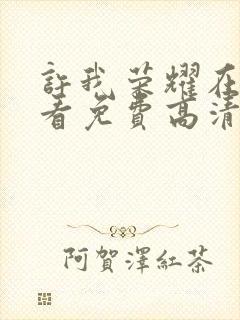 許我荣耀在
看免費高清
阿賀澤紅茶